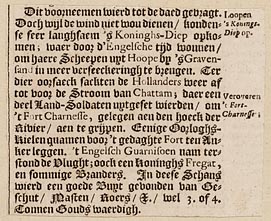 Dit voorneemen wierd tot de daed gebragt.
Doch wijl de wind niet wou dienen / konden-
se seer langhsaem 's Koninghs-Diep opko-
men; waer door d'Engelsche tijd wonnen/
om haere Scheepen uyt Hoope by 's Graven-
sand in meer verseeckeringh te brengen. Ter
dier oorsaeck sackten de Hollanders weer af
tot voor de Stroom van Chattam; daer een
deel Land-Soldaten uytgeset wierden / om
't Fort Charnesse, gelegen aen den hoeck der
Rivier/ aen te grijpen. Eenige Oorloghs-
kielen quamen voor 't gedagte Fort ten An-
ker leggen. 't Engelsch Guarnisoen nam ter-
stond de Vlught; oock een Koninghs Fregat,
en sommige Branders. In deese Schans
wierd een goede Buyt gevonden van Ge-
schut/ Masten/ Roers/ &c. wel 3. of 4.
Tonnen Gouds waerdigh.
Loopen
's Konings-
Diep op.
Veroveren
't Fort-
Charnesse;